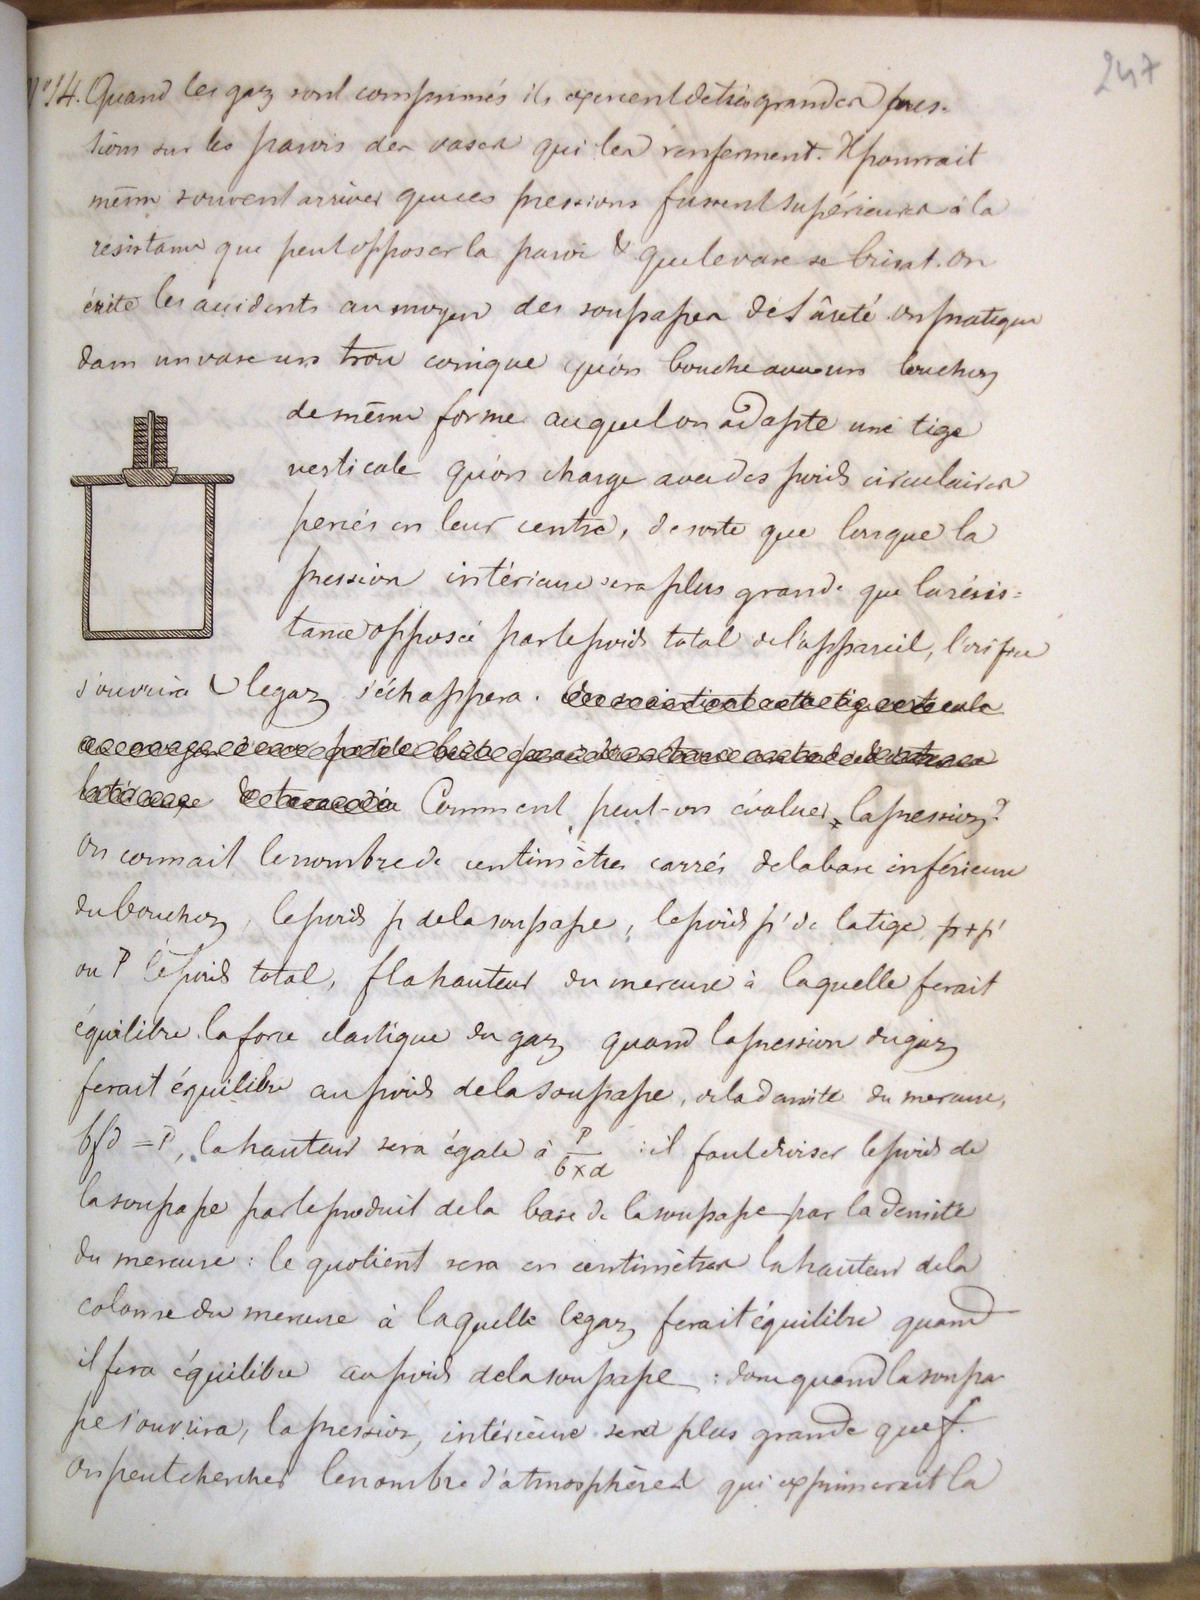 247
N° 14. Quand les gaz sont comprimés ils exercent de très grandes pres-
sions sur les parois des vases qui les renferment. Il pourrait
même souvent arriver que ces pressions fussent supérieures à la
résistance que peut opposer la paroi & que le vase se brisat. On
évite les accidents au moyen des soupapes de Sûreté. on pratique
dans un vase un trou conique qu'on bouche avec un bouchon
de même forme auquel on adapte une tige
verticale qu'on charge avec des poids circulaires
percés en leur centre, de sorte que lorsque la
pression intérieure sera plus grande que la résis-
tance opposée par le poids total de l'appareil, l'orifice
s'ouvrira & le gaz s'échappera.
Comment peut-on évaluer la pression?
On connait le nombre de centimètres carrés de la base inférieure
du bouchon, le poids p de la soupape, le poids p' de la tige, p+p'
ou P le poids total, f la hauteur du mercure à laquelle ferait
équilibre la force élastique du gaz quand la pression du gaz
ferait équilibre au poids de la soupape, d la densité du mercure,
bfd = P, la hauteur sera égale à P/b×d : il faut diviser le poids de
la soupape par le produit de la base de la soupape par la densité
du mercure : le quotient sera en centimètres la hauteur de la
colonne du mercure à laquelle le gaz ferait équilibre quand
il fera équilibre au poids de la soupape : donc quand la soupa-
pe s'ouvrira, la pression intérieure sera plus grande que f.
On peut chercher le nombre d'atmosphères qui exprimerait la